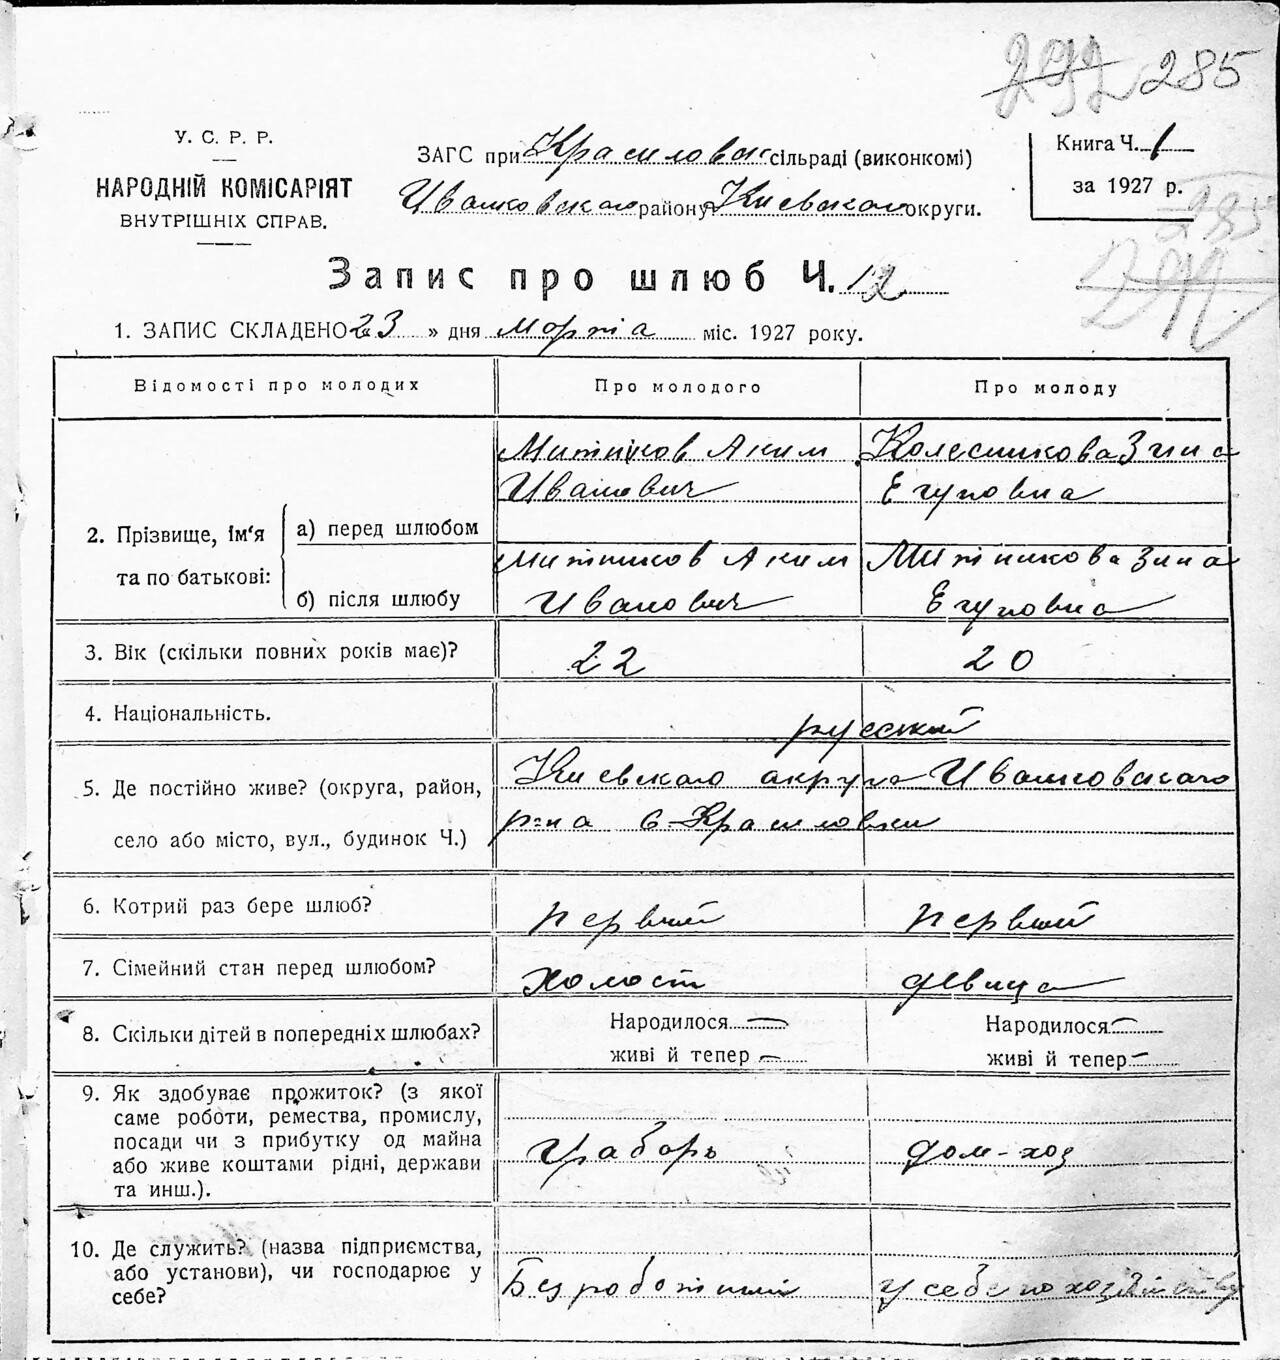 292 285
У. С. Р. Р.
НАРОДНІЙ КОМІСАРІЯТ
ВНУТРІШНІХ СПРАВ.
ЗАГС при Красиловск сільраді (виконкомі)
Ивашковского району Киевского округи.
Книга Ч. 1
за 1927 р.
285
292
Запис про шлюб Ч. 12
1. ЗАПИС СКЛАДЕНО 23 » дня марта міс. 1927 року.
Відомості про молодих Про молодого Про молоду
2. Прізвище, ім'я та по батькові:
а) перед шлюбом
Митников Аким
Иванович
Колесникова Зина
Егуповна
б) після шлюбу
Митников Аким
Иванович
Митникова Зина
Егуповна
3. Вік (скільки повних років має)? 22 20
4. Національність. русский
5. Де постійно живе? (округа, район,
село або місто, вул., будинок Ч.)
Киевского округа Ивашковского
р-на с-Красиловки
6. Котрий раз бере шлюб? первый первый
7. Сімейний стан перед шлюбом? холост девица
8. Скільки дітей в попередніх шлюбах?
Народилося — Народилося —
живі й тепер — живі й тепер —
9. Як здобуває прожиток? (з якої
саме роботи, ремества, промислу,
посади чи з прибутку од майна
або живе коштами рідні, держави
та инш.).
граборь дом-хоз
10. Де служить? (назва підприємства,
або установи), чи господарює у
себе?
Безработний у себе по хозяйству